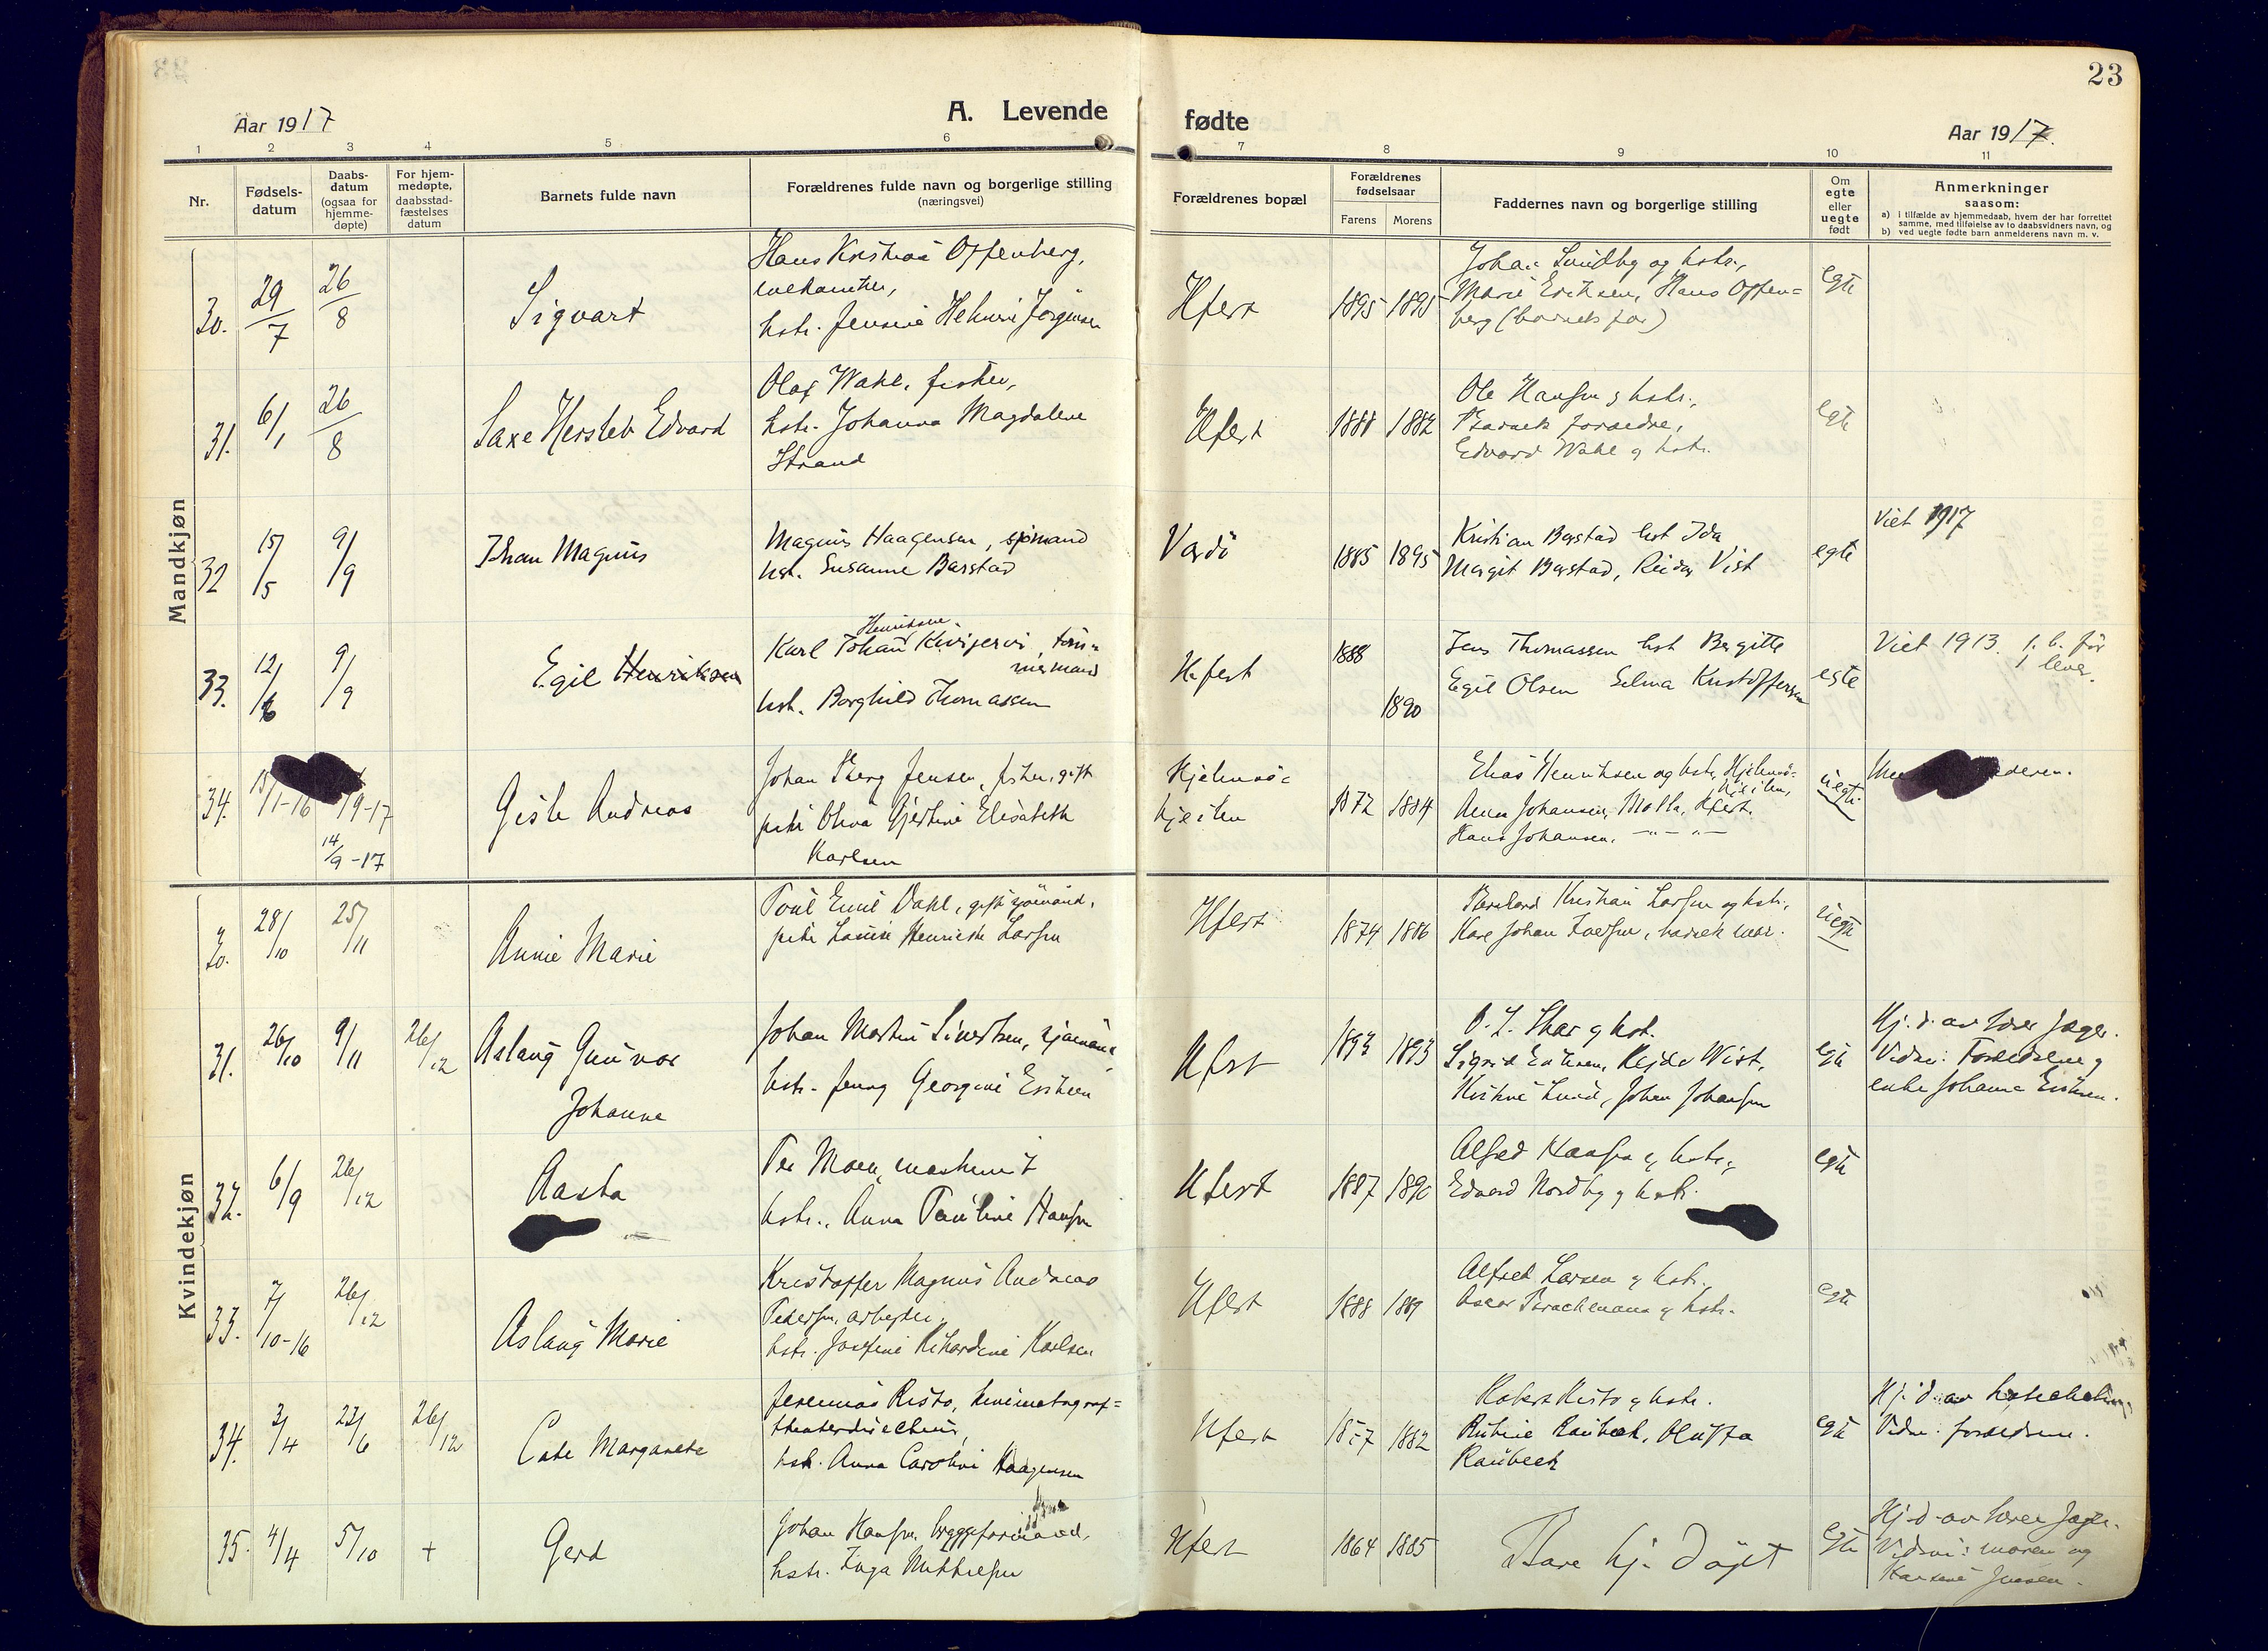 23
Aar 1917
A. Levende
fødte
Aar 1917.
1 2 3 4 5 6 7 8 9 10 11
Nr.
Fødsels-
datum
Daabs-
datum
(ogsaa for
hjemme-
døpte)
For hjem-
medøpte,
daabsstad-
fæstelses
datum
Barnets fulde navn
Forældrenes fulde navn og borgerlige stilling
(næringsvei)
Forældrenes bopæl
Forældrenes
fødselsaar
Farens Morens
Faddernes navn og borgerlige stilling
Om
egte
eller
uegte
født
Anmerkninger
saasom:
a) i tilfælde av hjemmedaab, hvem der har forrettet
samme, med tilføielse av to daabsvidners navn, og
b) ved uegte fødte barn anmelderens navn m. v.
Mandkjøn
30. 29/7 26/8 Sigvart
Hans Kristian Offenberg,
hstr. Jensine Helmine Jørgensen
Hfest 1895 1895
Johan Sundby og hstr.,
Marie Eriksen, Hans Offen=
berg (barnets far)
egte
31. 6/1 26/8 Saxe Hersleb Edvard
Olaf Wahl, fisker,
hstr. Johanna Magdalene
Strand
Hfest 1888 1882
Ole Hansen & hstr.,
Barnets foreldre,
Edvard Wahl & hstr.
egte
32 15/5 9/9 Johan Magnus
Magnus Haagensen, sjømand
hst. Susanne Barstad
Vardö 1885 1895
Kristian Barstad hst Ida
Margit Barstad, Reidar Vist
egte
Viet 1917
33. 12/6 9/9 Egil Henriksen
Henriksen
Karl Johan Kivijervi, töm=
mermand
hst. Borghild Thomassen
Hfest 1888 1890
Jens Thomassen hst Bergitte
Egil Olsen Selma Kristoffersen
egte
Viet 1913. 1. b. før
1 lever.
34. 15/1-16 19-17
14/9-17
Gisle Andreas
Johan Berg Jensen, fisker, gift
pike Olina Gjertine Elisabeth
Karlsen
Hjelmsö
1872 1884
Elias Henriksen og hstr. Hjelmsö-
Anna Johansen, Molla, Hfest.
Hans Johansen, —"— "—
uegte
Kvindekjøn
30. 28/10 25/11 Annie Marie
Poul Emil Dahl, gift sjömand,
pike Louise Henriette Larsen
Hfest 1874 1886
Kristian Larsen og hstr.,
Kare Johan Larsen, barnets mor.
uegte
31. 26/10 9/11 26/12 Aslaug Gunvor
Johanne
Johan Martin Sivertsen, sjömand
hstr. Jenny Georgine Eriksen
Hfest 1893 1893
O. J. Skar & hst.
Sigrid Eriksen, Rejdar Wist,
Kristine Lund, Johan Johansen
egte
Hj. d. av lærer Jager.
Vidne: Foreldrene &
enke Johanna Eriksen.
32. 6/9 26/12 Aasta
Per Moen, maskinist
hstr. Anna Pauline Hansen
Hfest 1887 1890
Alfred Hansen & hstr.,
Edvard Nordby & hstr.
egte
33. 7/10-16 26/12 Aslaug Marie
Kristoffer Magnus Andreas
Pedersen, arbejder,
hstr. Josefine Rikardine Karlsen
Hfest 1888 1889
Alfred Larsen & hstr.
Oscar Brachmann & hstr.
egte
34. 3/4 23/6 26/12 Cate Margarete
Jeremias Risto, kinematograf=
theaterdirecteur,
hstr. Anna Caroline Haagensen
Hfest 1882
Robert Risto & hstr.
Rubine Raubeck, Olufta
Raubeck
egte
Hj. d. av
Vidne: foreldrene.
35. 4/4 5/10 + Gerd
Johan Hansen, bryggeformand,
hstr. Inga Mikkelsen
Hfest 1864 1885
Bare hj. döpt
egte
Hj. d. av lærer Jager.
Vidne: moren og
Jensen.